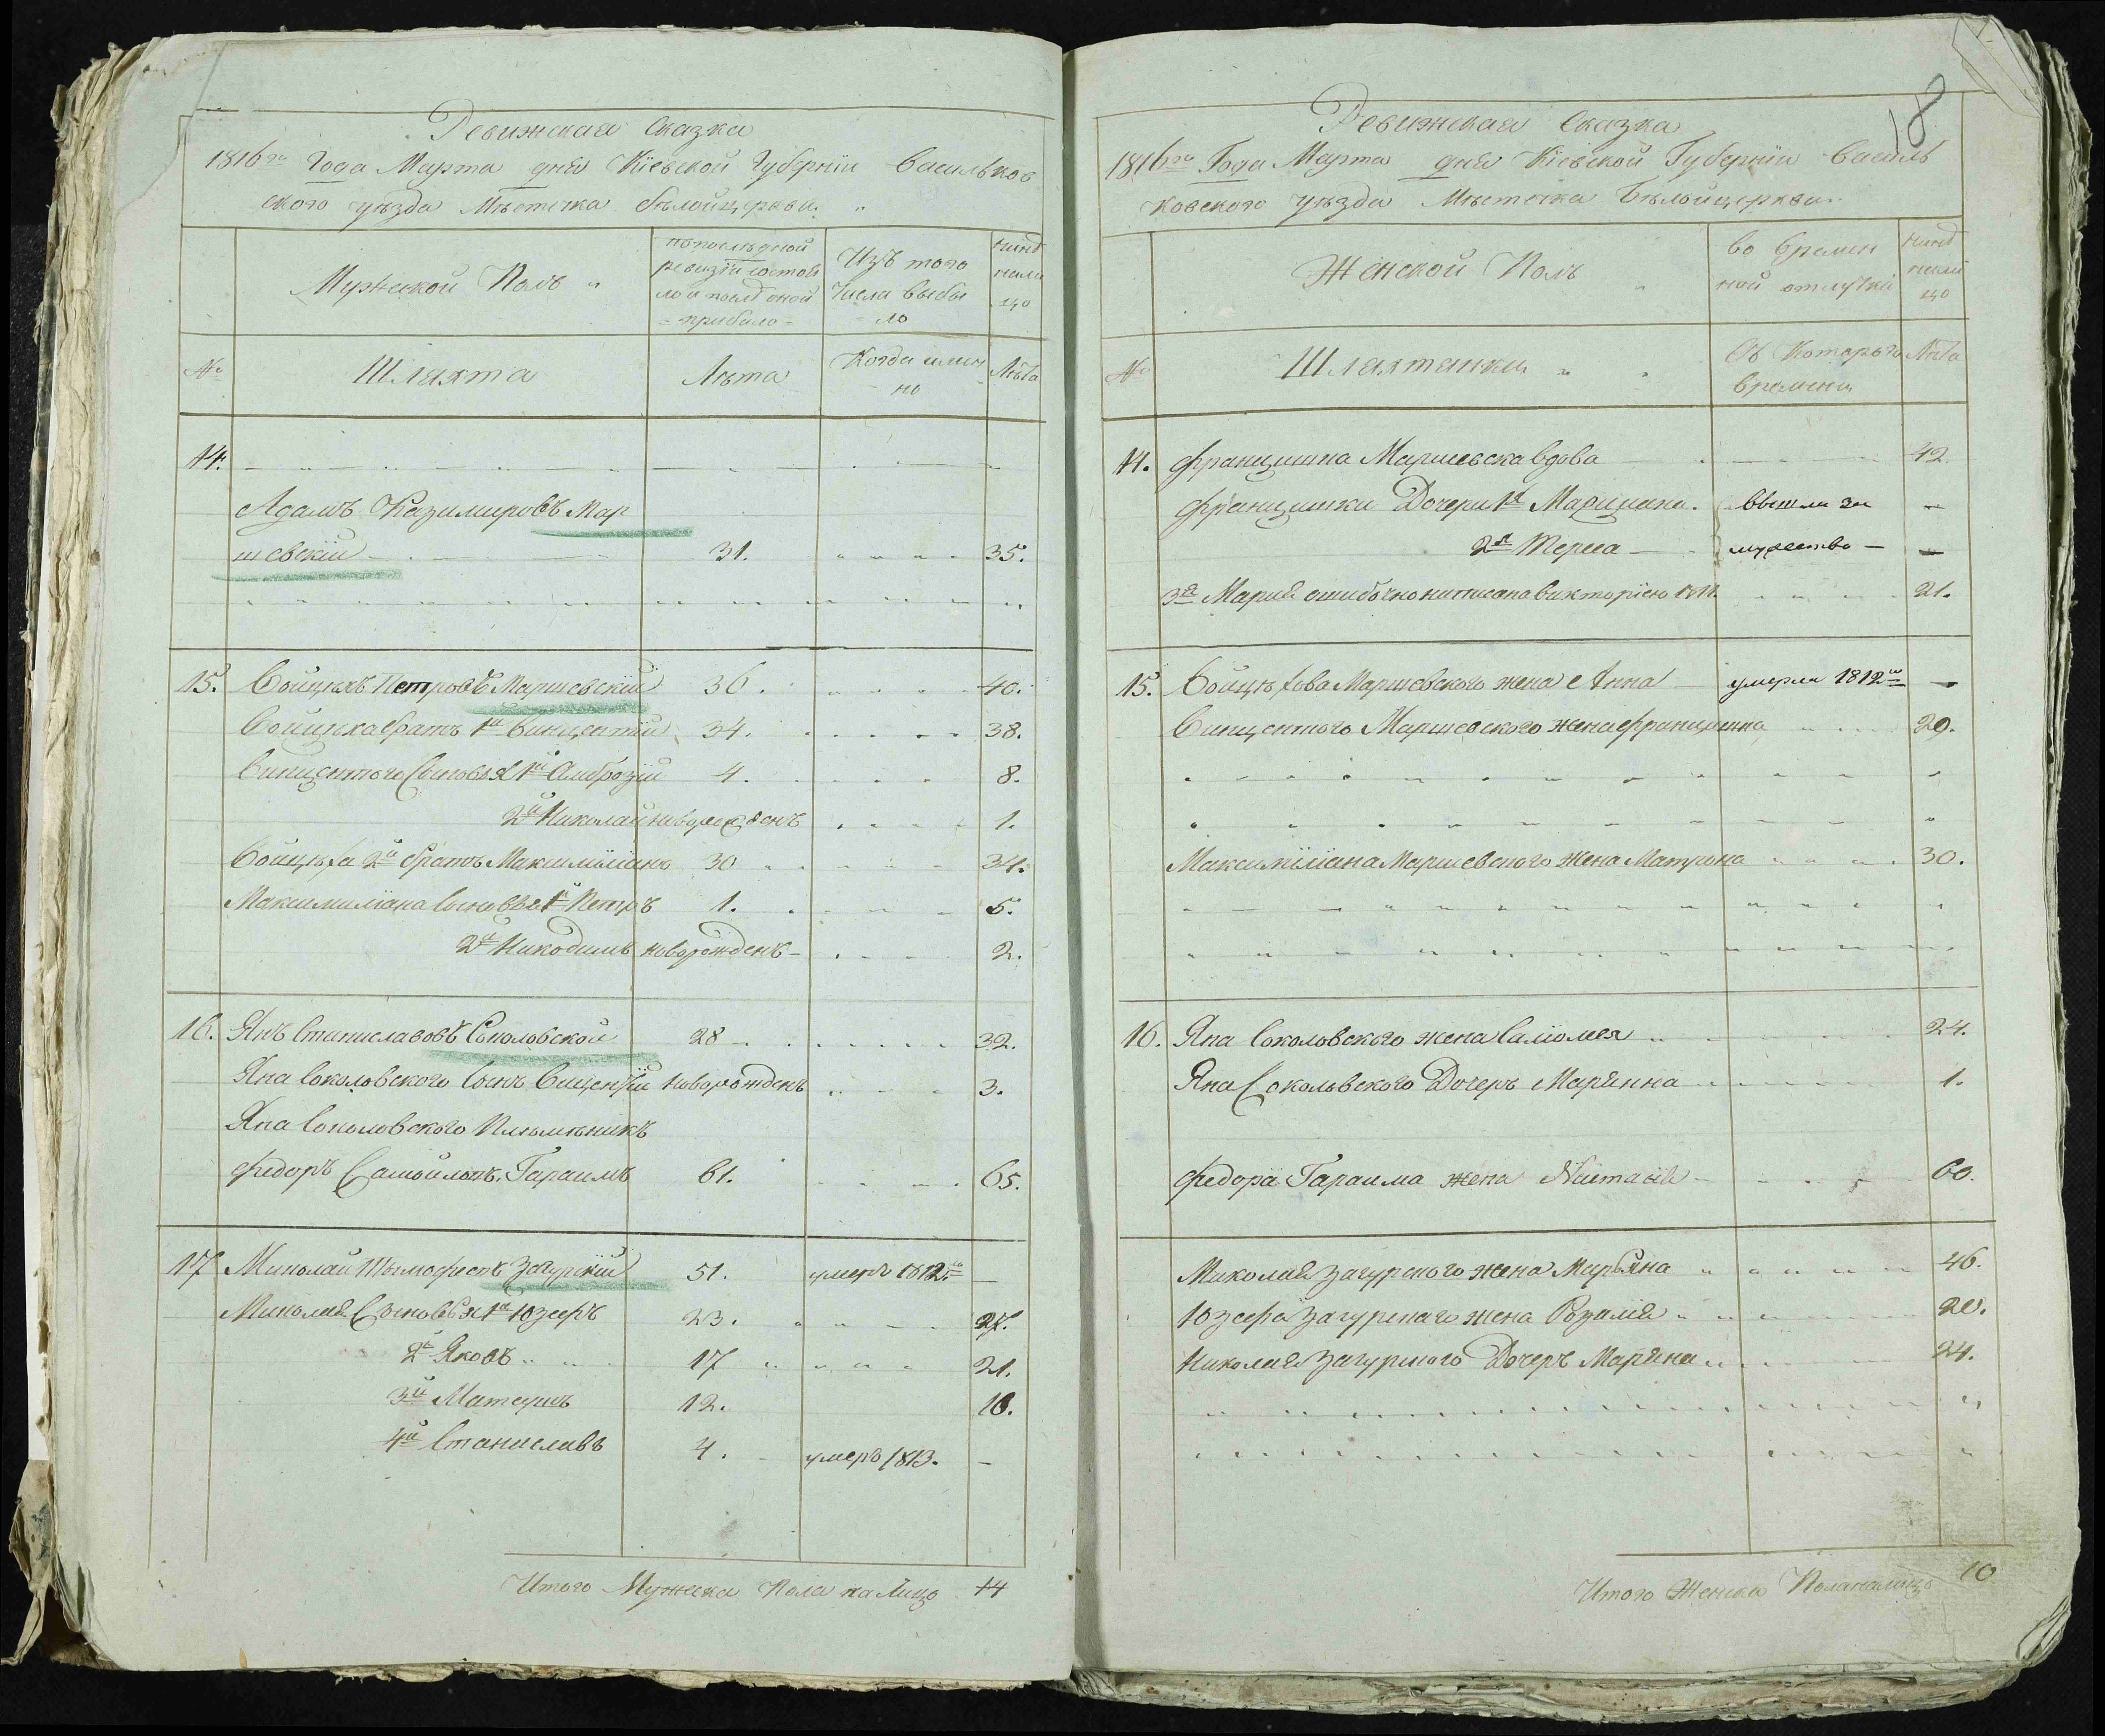 Ревижская Сказка
1816го Года Марта дня Кіевской Губерніи Васильков
ского уѣзда Мѣстечка бѣлойцеркви
Мужеской Полъ
по послѣдной
ревизіи состоя
ло и послѣ оной
прибыло
Изъ того
числа выбы
ло
нынѣ
нали
цо
№
Шляхта
Лѣта
Когда имен
но
Лѣта
14.
Адамъ Казимировъ Мар
шевскій 31. 35.
15. Войцѣхъ Петровъ Маршевскій 36. 40.
Войцѣха братъ 1й Винцентій 34. 38.
Винцентого Сыновья 1й Амброзій 4. 8.
2й Николай новорожденъ 1.
Войцѣха 2й братъ Максимиліанъ 30 34.
Максимиліана Сыновья 1й Петръ 1. 5.
2й Никодимъ новорожденъ 2.
16. Янъ Станиславовъ Соколовской 28 32.
Яна Соколовского Сынъ Вицентій новорожденъ 3.
Яна Соколовского Плѣмѣникъ
Федоръ Самойловъ Гараимъ 61. 65.
17 Миколай Тымофеевъ Загурскій 51. умеръ 1812го
Миколая Сыновья 1й Юзефъ 23. 27.
2й Яковъ 17 21.
3й Матеушъ 12. 16.
4й Станиславъ 4. умеръ 1813.
Итого Мужеска Пола на Лицо 14
18
Ревижская Сказка
1816го Года Марта дня Кіевской Губерніи Василь
ковского уѣзда Мѣстечка Бѣлойцеркви
Женской Полъ
во времен
ной отлучкѣ
нынѣ
нали
цо
№
Шляхтянки
Съ Которого
времени
Лѣта
14. Францишка Маршевска вдова 42.
Францишки Дочери 1я Марциана. вышли за
2я Тереса мужество
3я Марія ошибочно написана викторіею 1811. 21.
15. Войцѣхова Маршевского жена Анна умерла 1812го
Винцентого Маршевского жена францишка 29.
Максимиліана Маршевского жена Матрона 30.
16. Яна Соколовского жена Саломея 24.
Яна Сокольвского Дочеръ Маріянна 1.
Федора Гараима жена Настасія 60.
Миколая Загурского жена Марьяна 46.
Юзефа Загурского жена Розалія 20.
Николая Загурского Дочеръ Маріяна 24.
Итого Женска Пола налицо 10